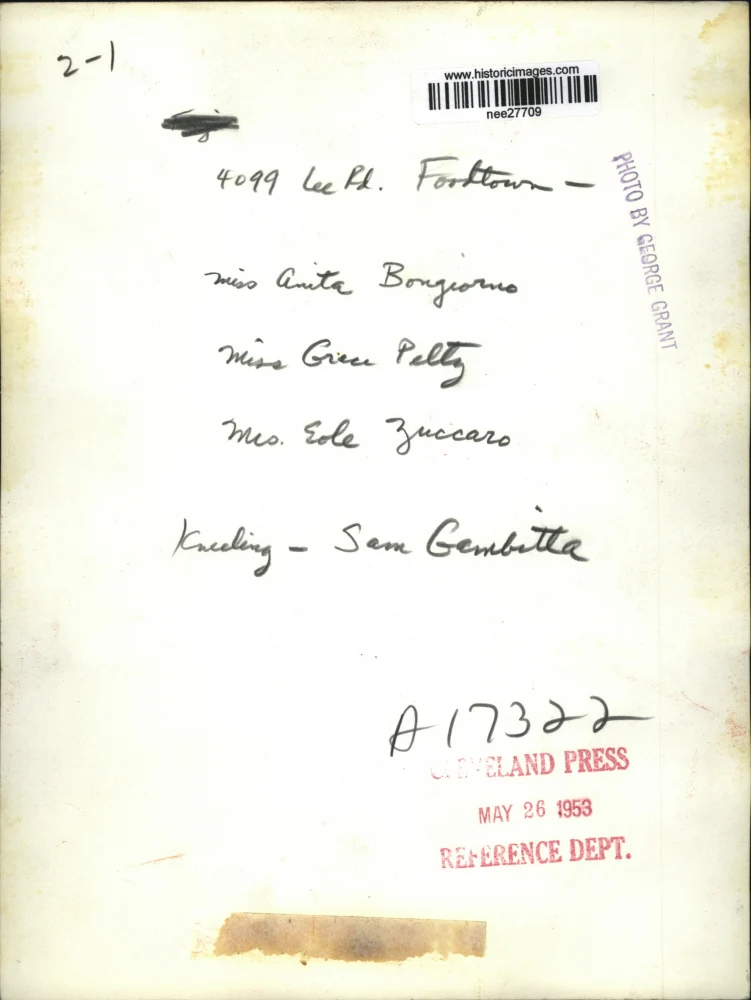 2-1
www.historicimages.com
nee27709
4099 Lee Rd. Foodtown -
PHOTO BY GEORGE GRANT
Miss Anita Bongiorno
Miss Grace Pelty
Mrs. Eole Zuccaro
Kneeling - Sam Gambitta
A17322
CLEVELAND PRESS
MAY 26 1953
REFERENCE DEPT.